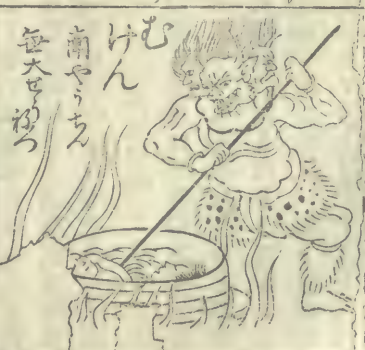 むけん
やうちん
無大せう祢つ